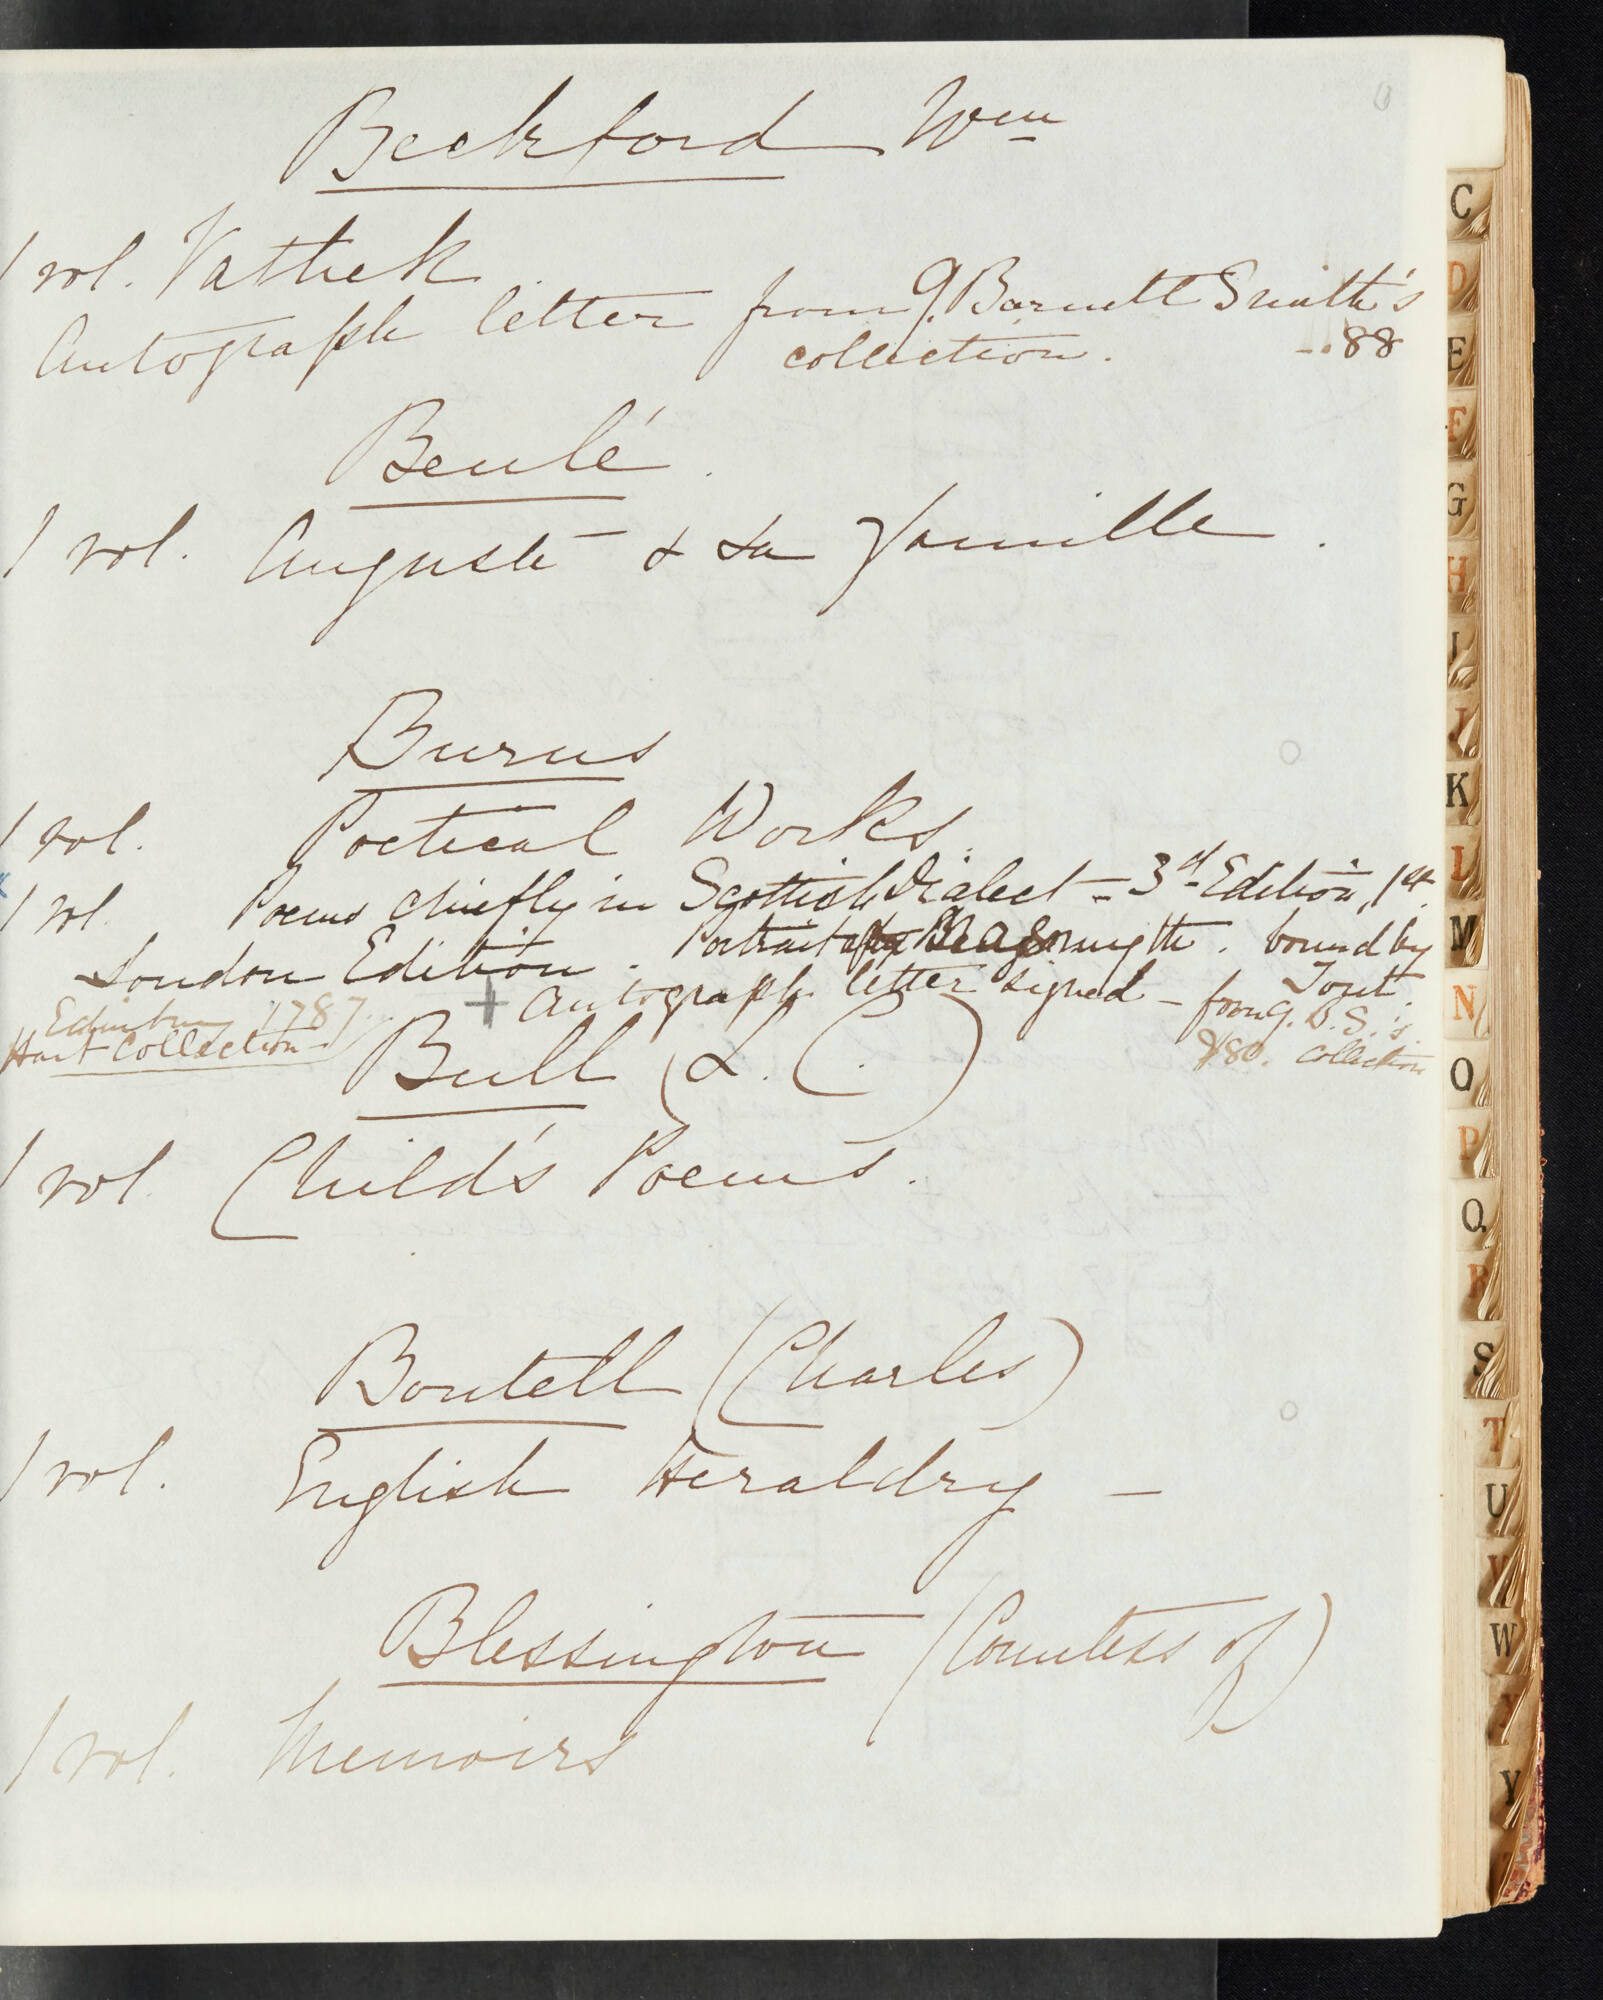 Beckford Wm
1 vol. Vathek
Autograph letter from G. Barnett Smith's
collection. 88
Beulé.
1 vol. Auguste & sa famille.
Burns
1 vol. Poetical Works.
1 vol. Poems chiefly in Scottish Dialect - 3rd Edition, 1st
London Edition. Portrait by Nasmyth. bound by
Tout.
+ Autograph letter signed - from G. B. S.'s
$80. Collection
Edinburg 1787
Hart Collection
Bull (L. C.)
1 vol. Child's Poems.
Boutell (Charles)
1 vol. English Heraldry -
Blessington (Countess of)
1 vol. Memoirs
C
D
E
F
G
H
I
J
K
L
M
N
O
P
Q
R
S
T
U
V
W
X
Y